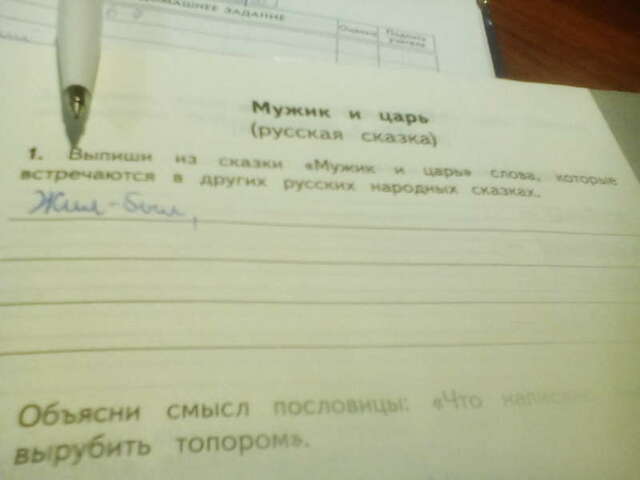 ДОМАШНЕЕ ЗАДАНИЕ
Оценка
Подпись учителя
Мужик и царь
(русская сказка)
1. Выпиши из сказки «Мужик и царь» слова, которые
встречаются в других русских народных сказках.
Жил-был,
Объясни смысл пословицы: «Что написано
вырубить топором».